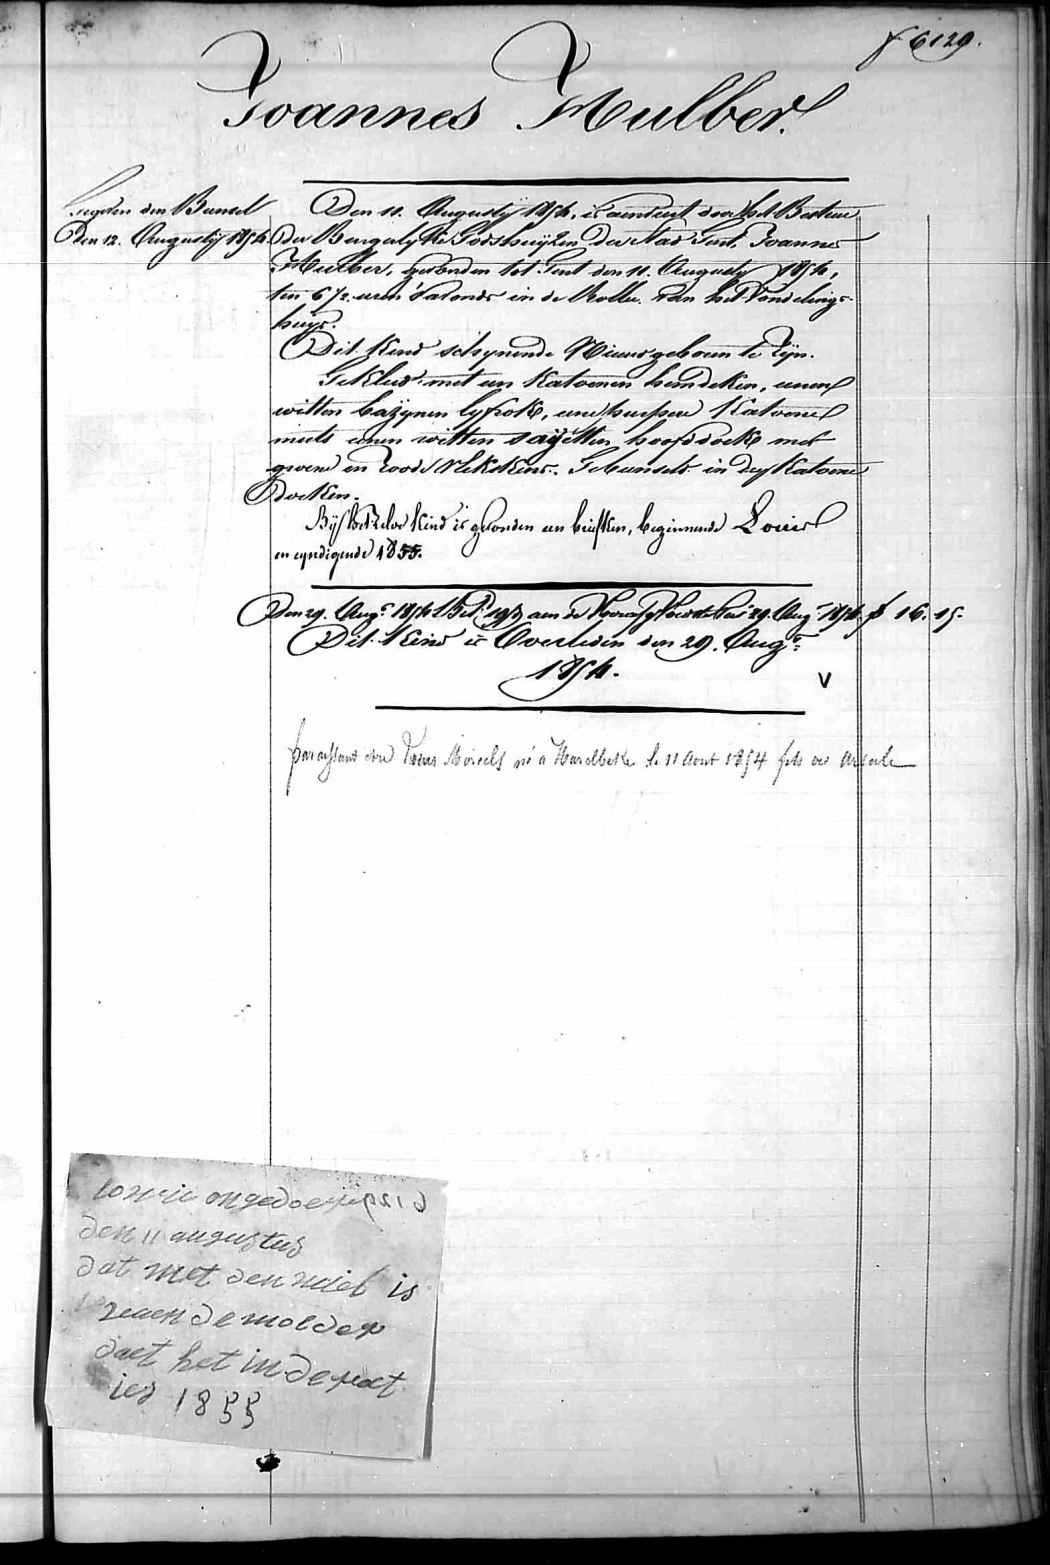 f 6129.
Joannes Hulber.
den Bundel
Den 12. Augusty 1854.
Den 11. Augusty 1854, is aenveert door het Bestuur
der Burgerlyke Godshuijzen der Stad Gent, Joannes
Hulber, gevonden tot Gent den 11. Augusty 1854,
ten 6 1/2 uren 's avonds in de Rolle van het Vondelings-
huys.
Dit Kind schynende Nieuwgeboren te zyn.
Gekleed met een Katoenen hemdeken, eenen
witten bazynen lyfrok, eene purpere Katoene
muts eenen witten sayetten hoofddoek met
groene en roode Vlekskens. Gebunseld in dry Katoene
doeken.
Bij het zelve kind is gevonden een briefken, beginnende Louis
en eyndigende 1855.
Den 29. Augs. 1854 aen de 29. Augs. 1854. f 16. 15.
Dit Kind is Overleden den 29. Augs.
1854.
V
paraissant être Moreels né à Harelbeke le 11 Aout 1854 fils de
6129
ongedoept
den 11 augustus
dat met den is
de molder
daet het in de
ier 1855